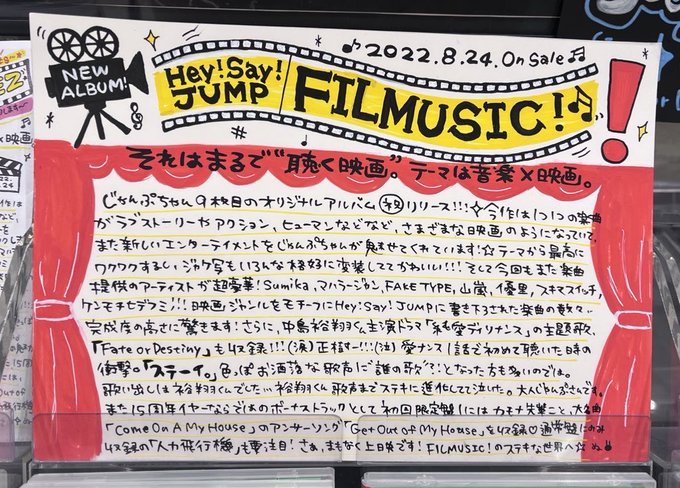 NEW
ALBUM!
2022.8.24. On Sale
Hey!Say!
JUMP
FILMUSIC!
それはまるで“聴く映画”。テーマは音楽×映画。
じゃんぷちゃん9枚目のオリジナルアルバム㊗リリース!!!☆今作は1つ1つの楽曲
がラブストーリーやアクション、ヒューマンなどなど、さまざまな映画のようになっていて、
また新しいエンターテイメントをじゃんぷちゃんが魅せてくれています!☆テーマから最高に
ワクワクするし、ジャケ写もいろんな格好に変装しててかわいい!!!そして今回もまた楽曲
提供のアーティストが超豪華!Sumika、マハラージャン、FAKE TYPE.、山嵐、優里、スキマスイッチ、
ケンモチヒデフミ!!!映画ジャンルをモチーフにHey!Say!JUMPに書き下ろされた楽曲の数々、
完成度の高さに驚きます!さらに、中島裕翔くん主演ドラマ「純愛ディソナンス」の主題歌、
「Fate or Destiny」も収録!!!(涙)正樹ー!!!(泣)愛ナンス1話で初めて聴いた時の
衝撃。「ステーイ。」色っぽお洒落な歌声に“誰の歌!?”となった方も多いのでは。
歌い出しは裕翔くんでした…裕翔くん歌声までステキに進化してて泣いた。大人じゃんぷさんです。
また15周年イヤーならではのボーナストラックとして初回限定盤1にはカモナ先輩こと、大名曲
「Come On A My House」のアンサーソング「Get Out of My House」を収録♡通常盤にのみ
収録の「人力飛行機」も要注目!さぁ、まもなく上映です!FILMUSIC!のステキな世界へ☆ぬ